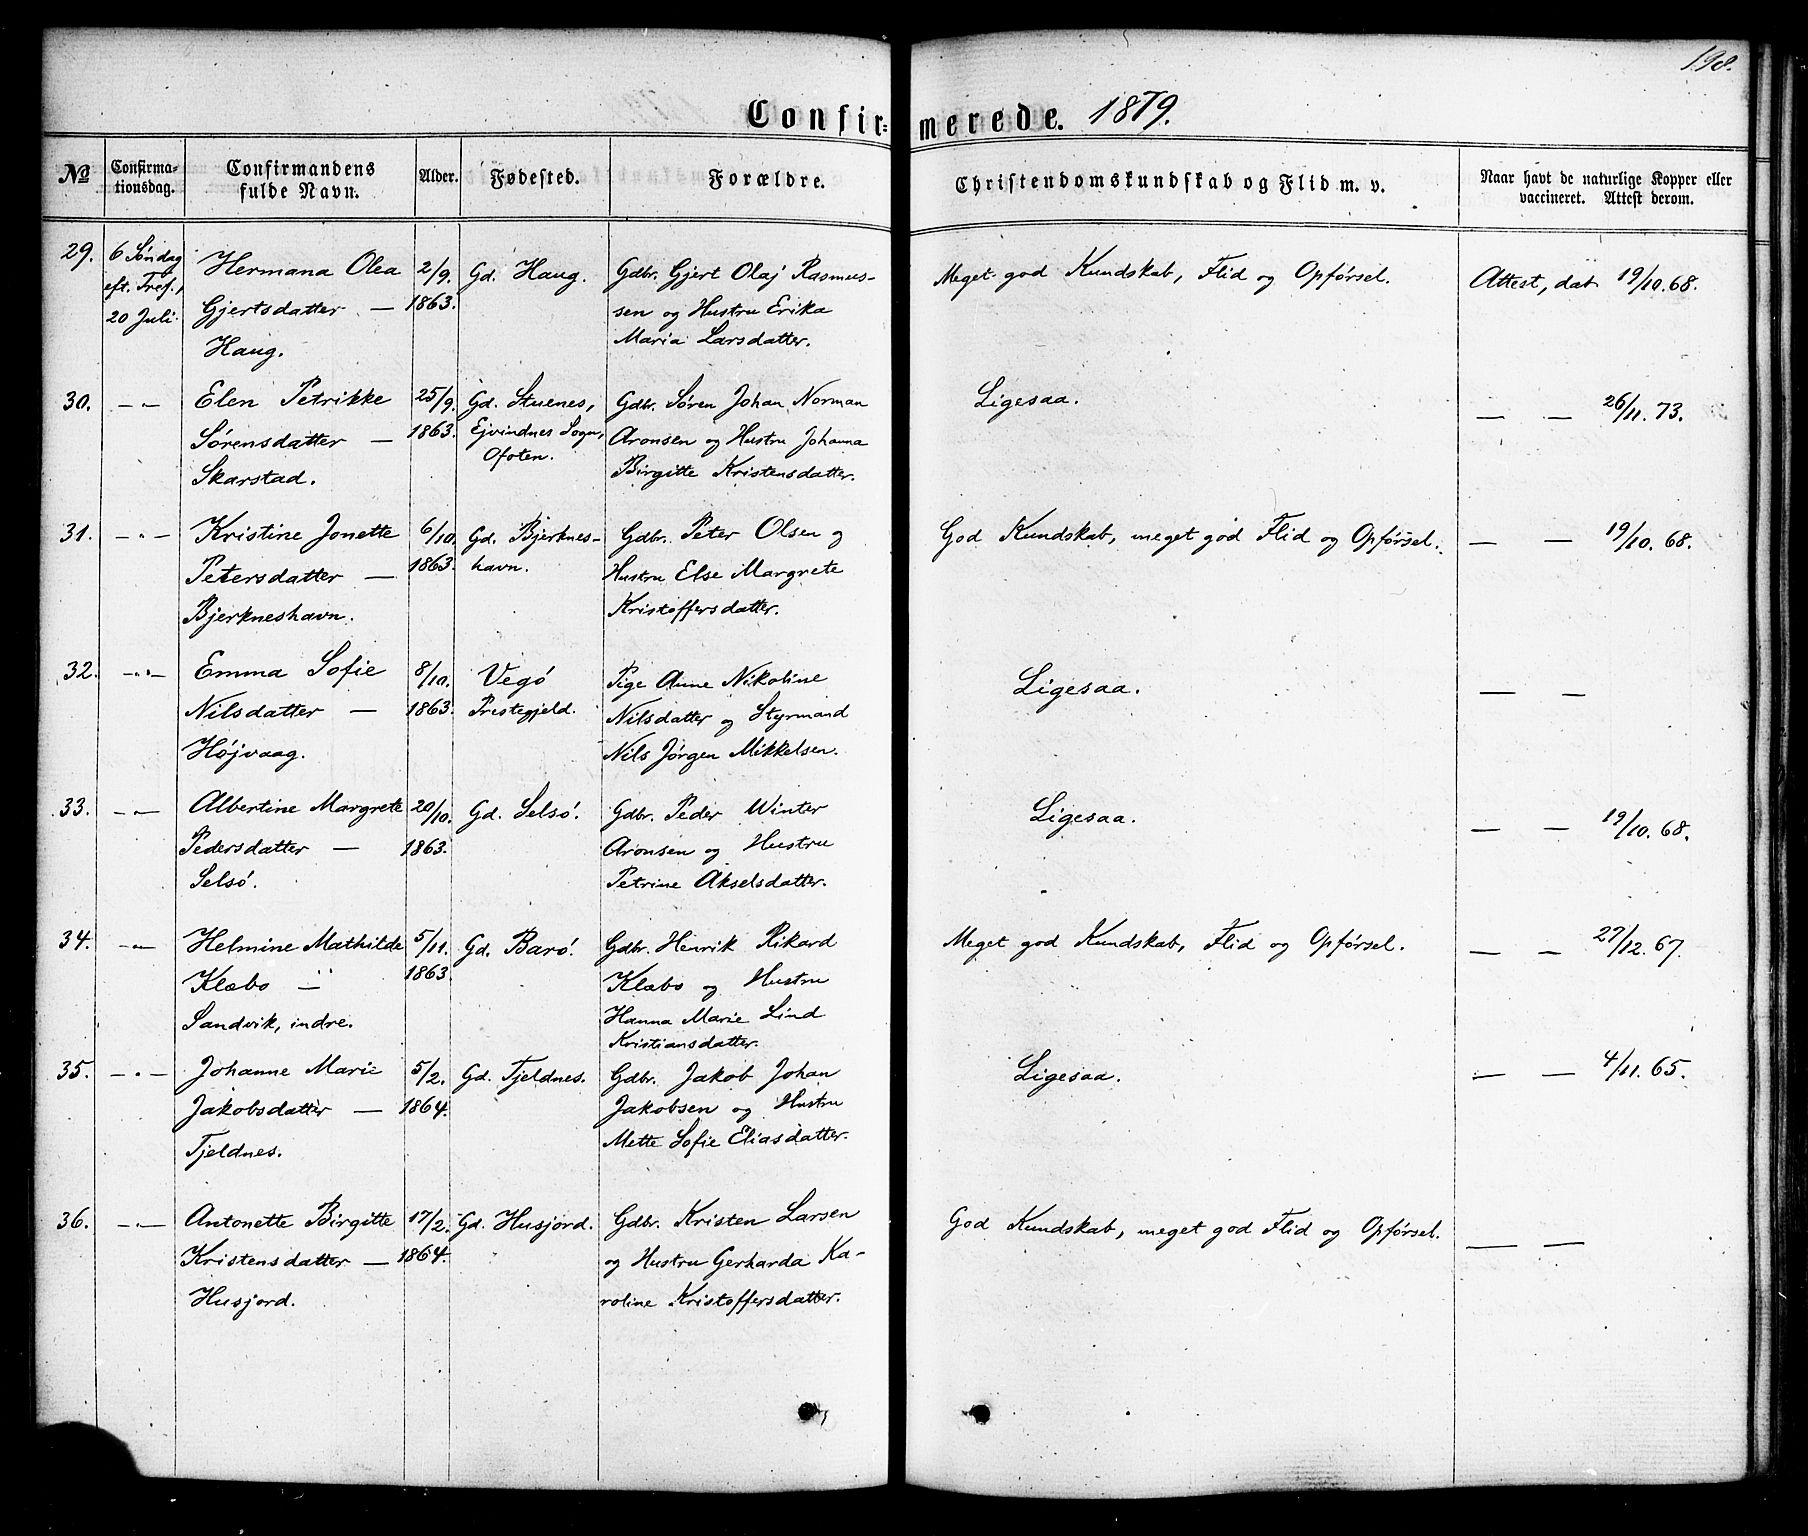 198.
Confirmerede. 1879.
№ Confirmationsdag. Confirmandens fulde Navn. Alder. Fødested. Forældre. Christendomskundskab og Flid m. v. Naar havt de naturlige Kopper eller vaccineret. Attest derom.
29. 6 Søndag Hermana Olea 2/9. Gd. Haug. Gdbr. Gjert Olaj Rasmus- Meget god Kundskab, Flid og Opførsel. Attest, dat 19/10. 68.
eft. Tref., Gjertsdatter — 1863. sen og Hustru Erika
20 Juli. Haug. Maria Larsdatter.
30. — " — Elen Petrikke 25/9. Gd. Stuenes, Gdbr. Søren Johan Norman Ligesaa. — — 26/11. 73.
Sørensdatter — 1863. Ejvindnes Sogn, Aronsen og Hustru Johanna
Skarstad. Ofoten. Birgitte Kristensdatter.
31. — " — Kristine Jonette 6/10. Gd. Bjerknes- Gdbr. Peter Olsen og God Kundskab, meget god Flid og Opførsel. — — 19/10. 68.
Petersdatter — 1863. havn. Hustru Else Margrete
Bjerkneshavn. Kristoffersdatter.
32. — " — Emma Sofie 8/10. Vegø Pige Anne Nikoline Ligesaa. — —
Nilsdatter — 1863. Prestegjeld. Nilsdatter og Styrmand
Højvaag. Nils Jørgen Mikkelsen.
33. — " — Albertine Margrete 20/10. Gd. Selsø. Gdbr. Peder Winter Ligesaa. — — 19/10. 68.
Pedersdatter — 1863. Aronsen og Hustru
Selsø. Petrine Akselsdatter.
34. — " — Helmine Mathilde 5/11. Gd. Barø. Gdbr. Henrik Rikard Meget god Kundskab, Flid og Opførsel. — — 27/12. 67.
Klæbo — 1863. Klæbo og Hustru
Sandvik, indre. Hanna Marie Lind
Kristiansdatter.
35. — " — Johanne Marie 5/2. Gd. Tjeldnes. Gdbr. Jakob Johan Ligesaa. — — 4/11. 65.
Jakobsdatter — 1864. Jakobsen og Hustru
Tjeldnes. Mette Sofie Eliasdatter.
36. — " — Antonette Birgitte 17/2. Gd. Husjord. Gdbr. Kristen Larsen God Kundskab, meget god Flid og Opførsel. — —
Kristensdatter — 1864. og Hustru Gerharda Ka-
Husjord. roline Kristoffersdatter.